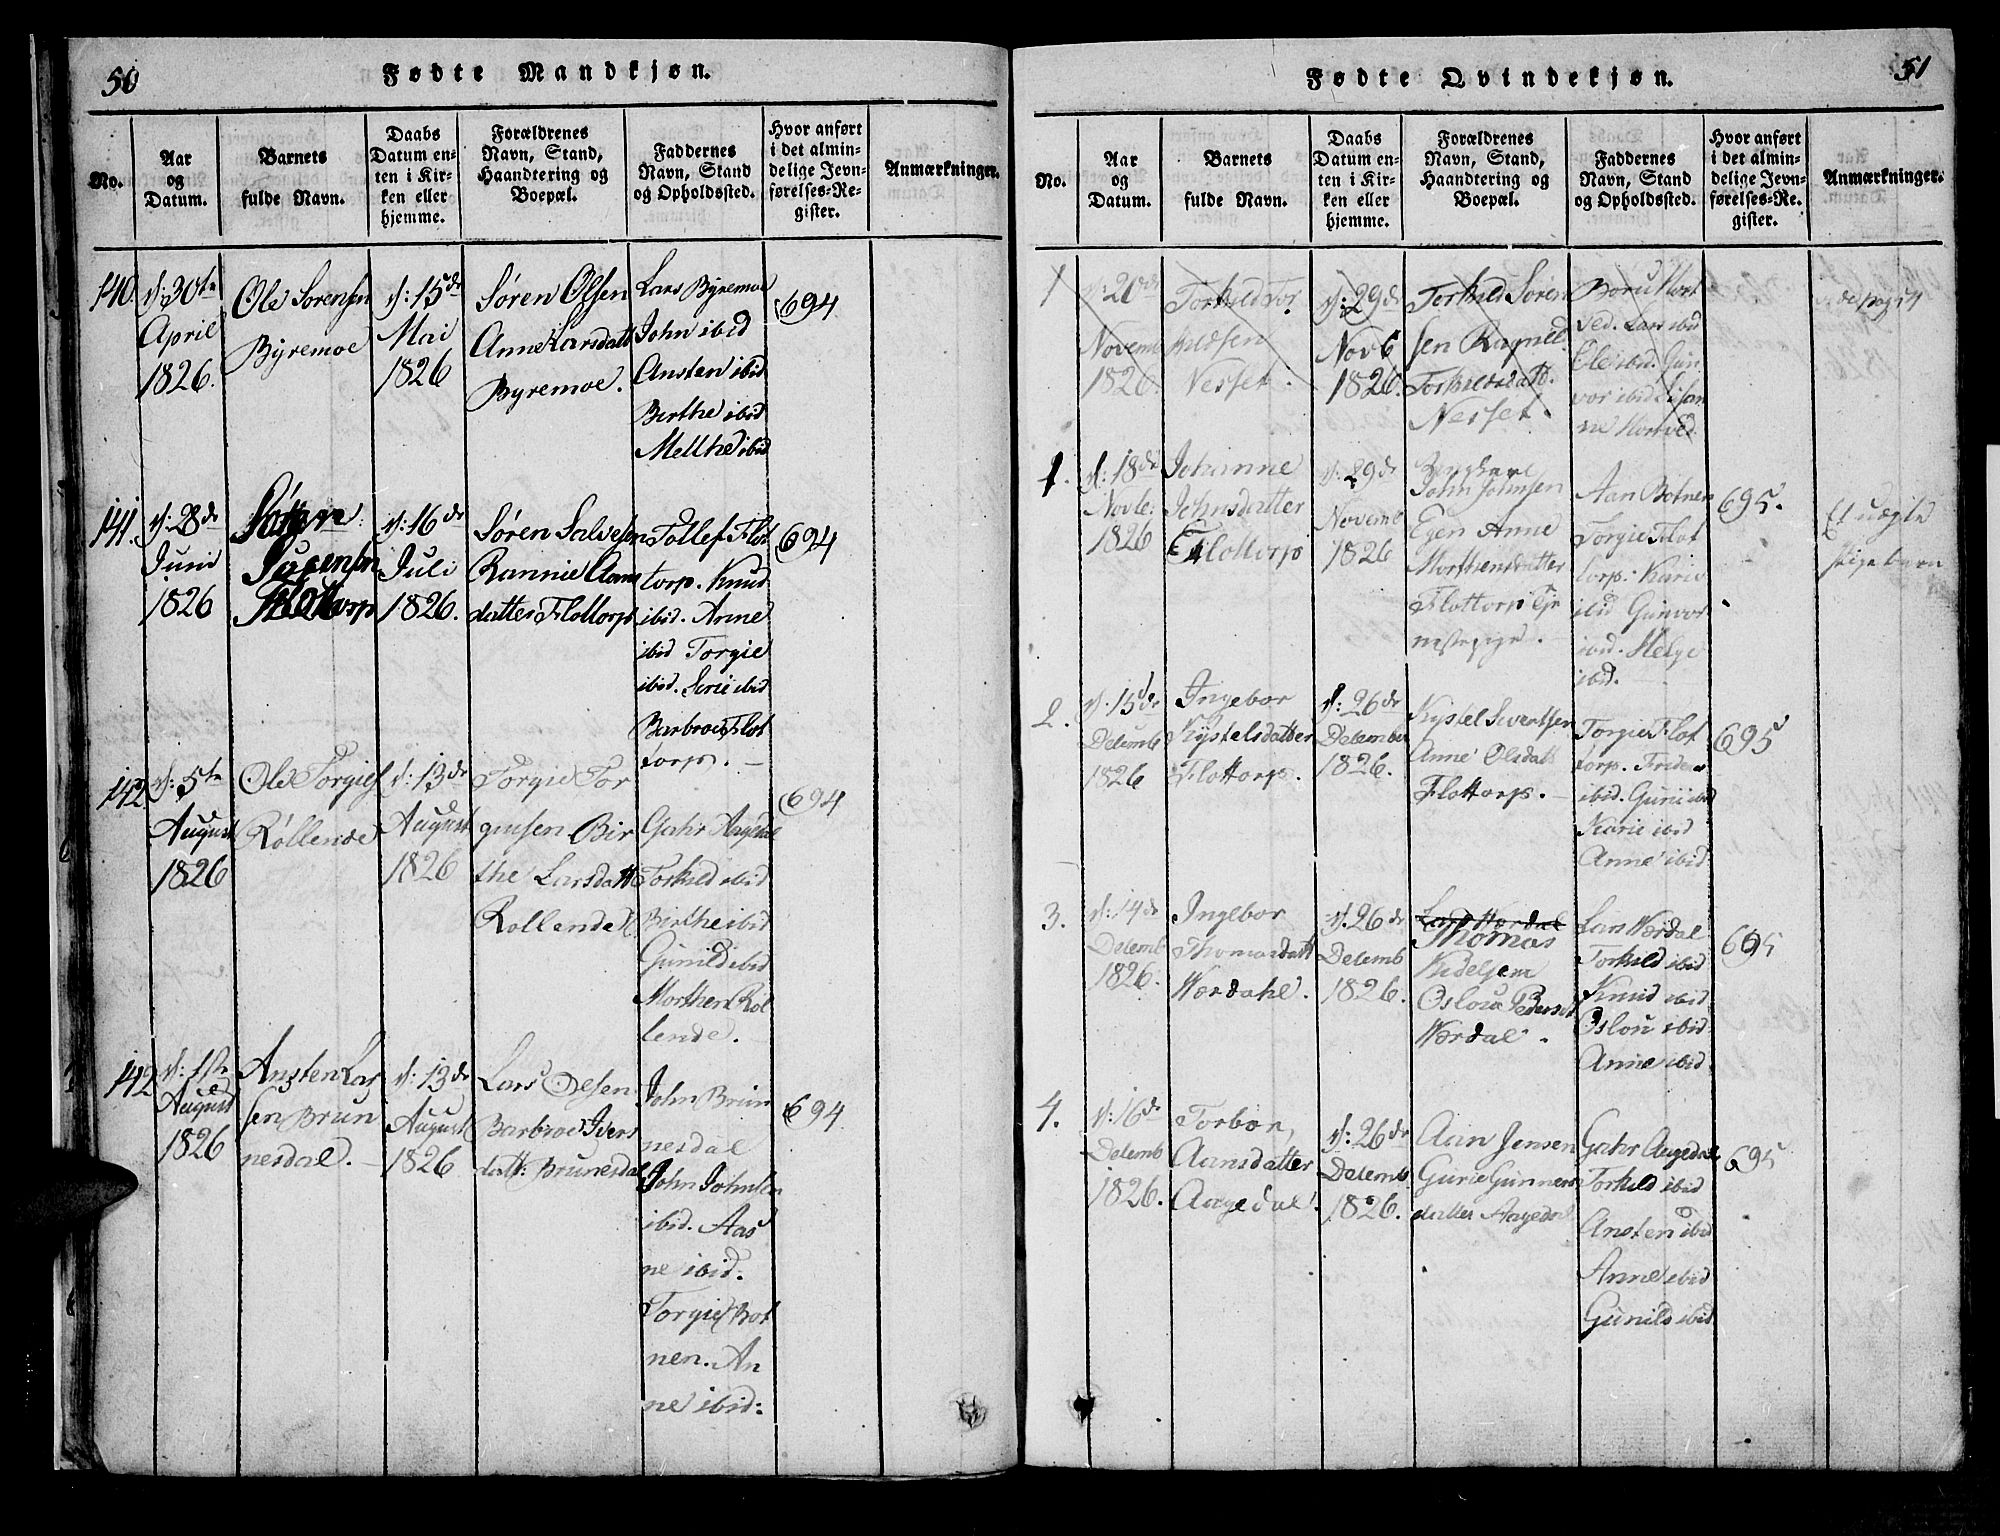 50
Fødte Mandkjøn.
No.
Aar
og
Datum.
Barnets
fulde Navn.
Daabs
Datum en-
ten i Kir-
ken eller
hjemme.
Forældrenes
Navn, Stand,
Haandtering og
Boepæl.
Faddernes
Navn, Stand
og Opholdssted.
Hvor anført
i det almin-
delige Jevn-
førelses-Re-
gister.
Anmærkninger.
140.
d: 30te
April
1826.
Ole Sørensen
Byremoe
d: 15de
Mai
1826
Søren Olsen
Anne Larsdatt
Byremoe.
Lars Byremoe
John ibid
Ansten ibid
Berthe ibid
Melthe ibid
694
141.
d: 28de
Juni
1826
Flottorp
d: 16de
Juli
1826.
Søren Salvesen
Rannie Aans
datter Flottorp
Tollef Flot
torp. Knud
ibid. Anne
ibid Torgie
ibid. Serie ibid
Barbroe Flot
torp. —
694
142.
d: 5te
August
1826
Ole Torgies
Røllende
d: 13de
August
1826
Torgie Tor
giusen Bir
the Larsdatt
Rollende
Gahr Aagedal
Torkild ibid
Birthe ibid
Gunild ibid
Morthen Rol
lende.
694
142
d: 1ste
August
1826
Ansten Lar
sen Brun
nesdal. —
d: 13de
August
1826
Lars Olsen
Barbroe Ivers
datt: Brunesdal
John Brun
nesdal
John Johnsen
ibid. Aas
ne ibid.
Torgie Bot
nen. An
ne ibid:
694
51
Fødte Qvindekjøn.
No.
Aar
og
Datum.
Barnets
fulde Navn.
Daabs
Datum en-
ten i Kir-
ken eller
hjemme.
Forældrenes
Navn, Stand,
Haandtering og
Boepæl.
Faddernes
Navn, Stand
og Opholdssted.
Hvor anført
i det almin-
delige Jevn-
førelses-Re-
gister.
Anmærkninger.
1
d: 20de
Novemb
1826.
Torkild Tor
kildsen
Nesset.
d: 29de
Novb
1826.
Torkild Søren
sen Ragnild
Torkildsdatt.
Nesset.
Boru Hort
ved. Lars ibid
Ole ibid. Gun
vor ibid Susan
ne Hortved.
vide pag 54
1.
d: 18de
Novbe:
1826
Johanne
Johnsdatter
Flottorp
d: 29de
Novemb
1826
Ungkarl
John Johnsen
Egen Anne
Morthensdatter
Flottorp Tje
nestepige. —
Aan Botnen
Torgie Flot
torp. Karie
ibid Gunvor
ibid. Helge
ibid.
695.
Et uægte
pigebarn
2.
d: 15de
Decemb
1826
Ingebor
Kystelsdatter
Flottorp.
d: 26de
December
1826.
Kystel Sivertsen
Anne Olsdatt
Flottorp. —
Torgie Flot
torp. Fredrik
ibid. Gurie ibid
Karie ibid
Anne ibid.
695
3.
d: 14de
Decemb
1826.
Ingebor
Thomasdatt
Wordahl.
d. 26de
Decemb
1826.
Lars Wordal
Thomas
Kedelsen
Oslou Pedersdt
Wordal.
Lars Wordal
Torkild ibid
Knud ibid
Oslou ibid
Anne ibid.
695
4.
d: 16de
Decemb
1826.
Torbor
Aansdatter
Aagedal.
d: 26de
Decemb
1826.
Aan Jensen
Gurie Gunners
datter Aagedal
Gahr Aagedal
Torkild ibid
Ansten ibid
Anne ibid
Gunild ibid
695